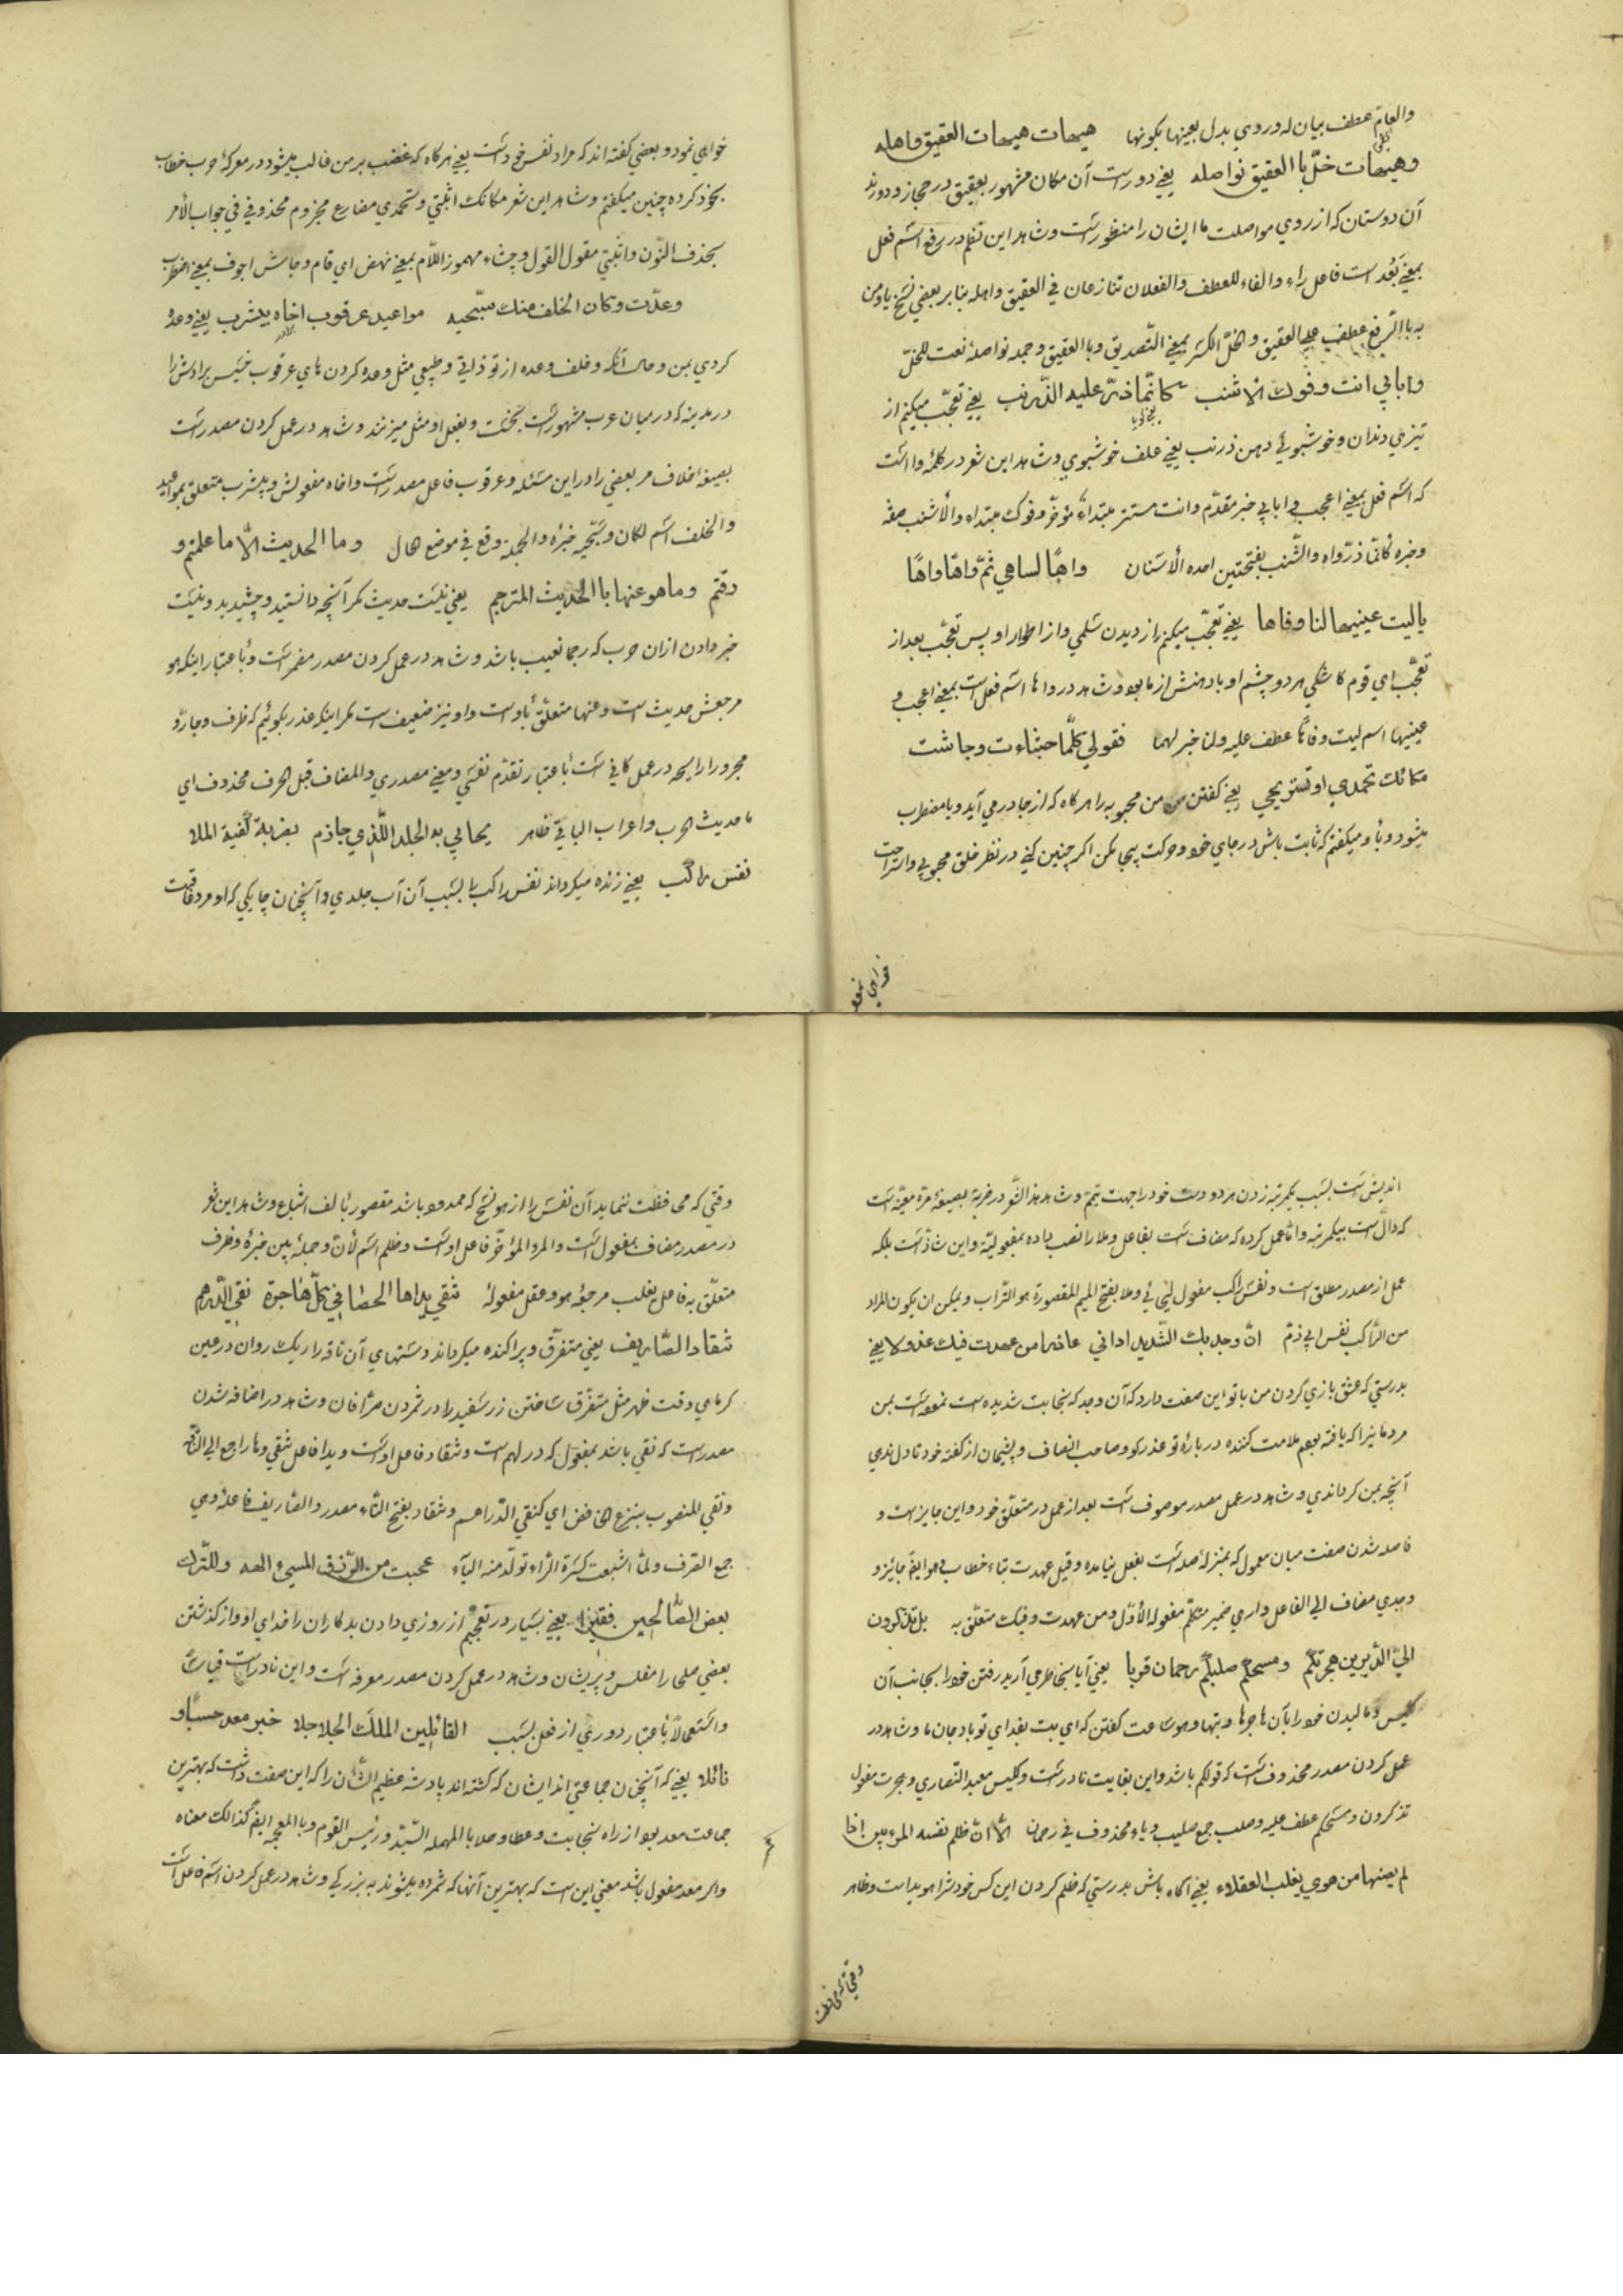 والعام عطف بیان له و روی بدل بعینها بکونها هیهات هیهات العقیق واهله
وهیهات خلّ با العقیق نواصله یعنی دور است آن مکان مشهور بعقیق در حجاز و دورند
آن دوستان که از روی مواصلت ما ایشان را منظور است و شاهد این نظم در رفع اسم فعل
بمعنی بَعُد است فاعل را و الفاء للعطف والفعلان تنازعان فی العقیق واهله بنا بر بعضی نسخ یا ومن
به با الرفع عطف علی العقیق والخلّ الکسر بمعنی الصدیق وبا العقیق وجمله نواصله نعت للخلّ
وابابی انت وفوک الاشنب کانّما ذرّ علیه الذّرنب یعنی تعجّب میکنم از
تیزی دندان و خوشبوئی دهن ذرنب یعنی علف خوشبوی و شاهد این شعر در کلمه وا است
که اسم فعل بمعنی اعجب وابابی خبر مقدّم وانت مستتر مبتداء مؤخّر وفوک مبتداء والأشنب صفه
وخبره کانّما ذرّ واه والشّنب بفتحتین احده الأسنان واهًا لسلمی ثمّ واهًا واهًا
یا لیت عینیها لنا وفاها یعنی تعجّب میکنم از دیدن سلمی و از اطوار او پس تعجّب بعد از
تعجّب ای قوم کاشکی هر دو چشم او با دهنش از ما بود و شاهد در واها اسم فعل است بمعنی اعجب و
عینیها اسم لیت وفاها عطف علیه ولنا خبر لهما فقولی کلّما جشاءت وجاشت
مکانک تحمدی او تستریحی یعنی گفتن من محبوبه را هرگاه که از جا در می آید و یا مضطرب
میشود و با او میگفتم که ثابت باش در جای خود و حرکت بیجا مکن اگر چنین کنی در نظر خلق محبوبی و استراحت
خواهی نمود
خواهی نمود و بعضی گفته اند که مراد نفس خود است یعنی هرگاه که غضب بر من غالب میشود در معرکه حرب خطاب
بخود کرده چنین میگفتم و شاهد این شعر مکانک اثبتی و تحمدی مضارع مجزوم محذوفی فی جواب الأمر
بحذف النّون واثبتی مقول القول وجشاء مهموز اللّام بمعنی نهض ای قام وجاش اجوف بمعنی اضطرب
وعدّت وکان الخلف منک سجیه مواعید عرقوب اخاه بیثرب یعنی وعده
کردی بمن و حال آنکه و خلف وعده از تو ذاتی و طبیعی مثل وعده کردن های عرقوب خسیس برادرش را
در مدینه که در میان عرب مشهور است بخست و بفعل او مثل میزنند و شاهد در عمل کردن مصدر است
بصیغه اخلاف مر بعضی را در این مسئله و عرقوب فاعل مصدر است و اخاه مفعولش و بیثرب متعلّق بمواعید
والخلف اسم لکان وسجیه خبره والجمله وقع فی موضع حال وما الحدیث الّا ما علمتم و
ذقتم وما هو عنها با الحدیث المترجم یعنی نیست حدیث مگر آنچه دانستید و چشیدید و نیست
خبر دادن از آن حرب که رجما بغیب باشد و شاهد در عمل کردن مصدر مضمر است و با عتبار اینکه هو
مرجعش حدیث است و عنها متعلّق باو است و او نیز ضعیف است مگر اینکه عذر بگوئیم که ظرف و جار و
مجرور را رایحه در عمل کافی است با عتبار تقدّم نفسی و معنی مصدری والمضاف قبل الحرف محذوف ای
ما حدیث الحرب واعراب الباقی ظاهر یحابی به الجلد الّذی حازم بضربة کفّیه الملا
نفس راکب یعنی زنده میگرداند نفس راکب را بسبب آن آب جلدی و آنچنان چابکی که او مرد عاقبت
اندیش است بسبب یکمرتبه زدن هر دو دست خود را جهت تیمّم و شاهد هذا الشّعر در ضربة بصیغه مرّة معیّنه است
که دالّ است بیکمرتبه و امّا عمل کرده که مضاف است بفاعل و ملا را نصب داده بمفعولیّة و این شاذّ است بلکه
عمل از مصدر مطلق است و نفس راکب مفعول لیحابی و ملا بفتح المیم المقصورة هو التّراب و یمکن ان یکون المراد
من الرّاکب نفس ابی ذمّ انّ وجدی بک الشّدید ادانی عاذرا من عهدت فیک عذولا یعنی
بدرستی که عشق بازی کردن من با تو این صفت دارد که آن وجد که بنجابت شدیده است نموده است بمن
مردمانیرا که یافته بودم ملامت کننده در باره تو عذرگو و صاحب انصاف و پشیمان از گفته خود تا دل ندی
آنچه بمن گرداندی و شاهد در عمل مصدر موصوف است بعد از عمل در متعلّق خود و این جایز است و
فاصله شدن صفت میان معمول که بمنزله صله است بفعل نیامده وقیل عهدت بتاء خطاب هو ایضا جائز و
وجدی مضاف الی الفاعل وارمی ضمیر متکلّم مفعوله الأوّل ومن عهدت وفیک متعلّق به بل تذکرون
الی الدّیرین هجرتکم ومسحکم صلبکم رحمان قربا یعنی آیا بخاطر می آرید رفتن خود را بجانب آن
کلیس و مالیدن خود را بآن هاجرها و بتها و هو ساعت گفتن که ای بت بفدای تو باد جان ما و شاهد در
عمل کردن مصدر محذوف است که قولکم باشد و این بغایت نادر است و کلیس معبد النّصاری و هجرت مفعول
تذکرون و مسحکم عطف علیه و صلب جمع صلیب و یاء محذوف فی رحمان الا انّ ظلم نفسه المرء بین اذا
لم یصنها من هوی یغلب العقلاء یعنی آگاه باش بدرستی که ظلم کردن این کس خودش را هویدا است و ظاهر
وقتی که محافظت
وقتی که محافظت ننماید آن نفس را از هو نسخ که ممدود باشد مقصور بالف اشباع و شاهد این شعر
در مصدر مضاف بمفعول است والمرء المؤخّر فاعل او است وظلم اسم لأنّ وجمله بین خبره وظرف
متعلّق به فاعل یغلب مرجعه هو وعقل مفعوله تنقی یداها الحصا فی کلّ هاجرة نقی الدّرهم
تنقاد الصّیاریف یعنی متفرّق و پراکنده میگرداند دستهای آن ناقه را ریک روان در عین
گرمای وقت ظهر مثل متفرّق ساختن زر سفید را در شمردن صرّافان و شاهد در اضافه شدن
مصدر است که نقی باشد بمفعول که درلهم است و تنقاد فاعل او است و یدا فاعل تنقی و ها راجع الی النّاقه
ونقی المنصوب بنزع الخافض ای کنقی الدّراهم وتنقاد بفتح التّاء مصدر والصّیاریف فاعله وهی
جمع الصّرف ولمّا اشبعت کسرة الرّاء تولّد منه الیاء عجبت من الرّزق المسیء الهه وللتّرک
بعض الصّالحین فقیرا یعنی بسیار در تعجّبم از روزی دادن بدکاران را خدای او و از گذشتن
بعضی صلحا را مفلس و پریشان و شاهد در عمل کردن مصدر معرفه است و این نادر است قیاسًا
و استعمالاً باعتبار دوری از فعل بسبب القاتلین الملک الحلاحلا خیر معد حسبا و
نائلا یعنی که آنچنان جماعتی اند ایشان که کشته اند پادشه عظیم الشّان را که این صفت داشت که بهترین
جماعت معد بود از راه نجابت و عطا و حلا با المهمله السّیّد و رئیس القوم وبا المعجمه ایضا کذالک معناه
واگر معد مفعول باشد معنی این است که بهترین آنها که شمرده میشوند به بزرگی و شاهد در عمل کردن اسم فاعل است